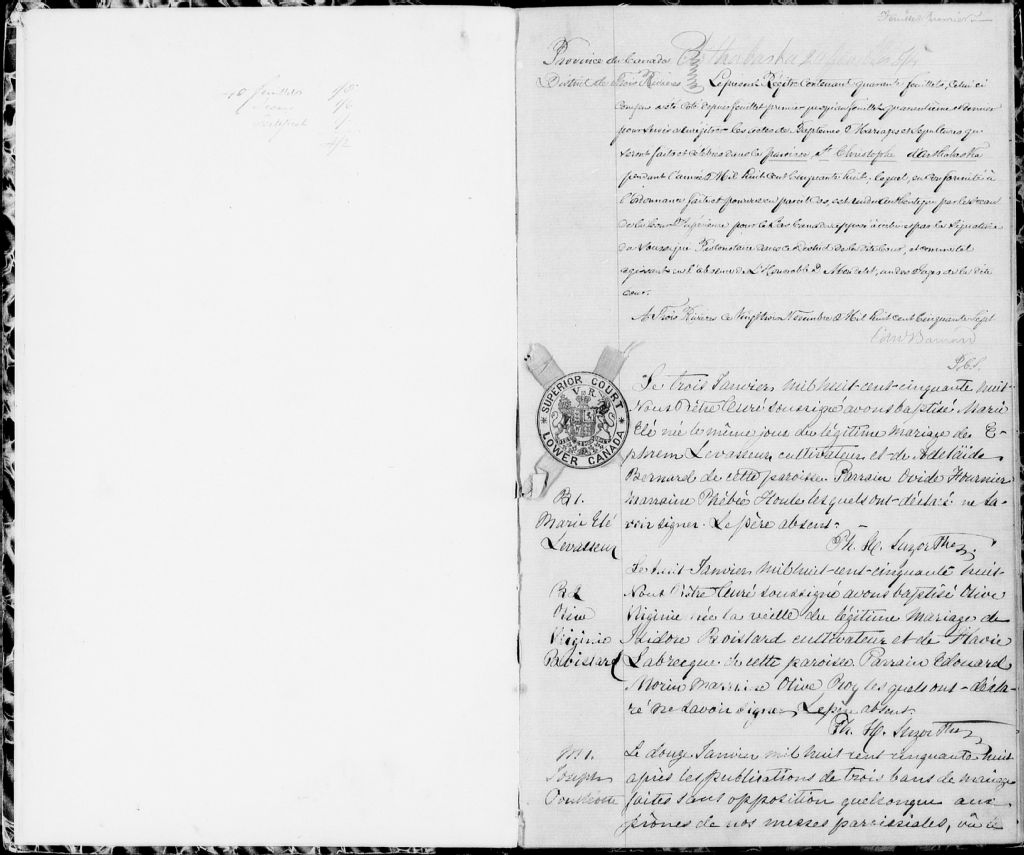 40 feuillets
Feuillet premier
Province du Canada
District de Trois Rivières
Le présent Régitre contenant quarante feuillets, celui ci
compris a été coté depuis feuillet premier jusqu'au feuillet quarantième et dernier
pour servir à enregistrer les actes de Baptêmes, Mariages et Sépultures qui
seront faits et célébrés dans la paroisse St Christophe d'Arthabaska
pendant l'année Mil huit cent cinquante huit, lequel, en conformité à
l'ordonnance faite et pourvue en pareil cas, est rendu authentique par le sceau
de la Cour Supérieure pour le Bas Canada apposé à et par la signature
du soussigné Protonotaire dans le District de la dite Cour, et comme tel
agissant en l'absence de L'Honorable D. Mondelet, un des Juges de la dite
cour.
A Trois Rivières ce vingt trois Novembre Mil huit cent cinquante Sept
P.C.S.
SUPERIOR COURT
V R
LOWER CANADA
B 1.
Marie Elé
Levasseur
Le trois Janvier mil huit-cent-cinquante huit-
Nous Prêtre Curé soussigné avons baptisé Marie
Elé née le même jour du légitime mariage de E-
phrem Levasseur cultivateur et de Adélaïde
Bernard de cette paroisse. Parrain Ovide Fournier
Marraine Phébée Houle lesquels ont-déclaré ne sa-
voir signer. Le père absent-
Ph. H. Suzor Ptre
B 2
Olive
Virginie
Boistard
Le huit Janvier mil huit-cent-cinquante huit-
Nous Prêtre Curé soussigné avons baptisé Olive
Virginie née la veille du légitime mariage de
Isidore Boistard cultivateur et de Flavie
Labrecque de cette paroisse. Parrain Edouard
Morin Marraine Olive Roy lesquels ont-décla-
ré ne savoir signer Le père absent.
Ph. H. Suzor Ptre
M 1.
Joseph
Le douze Janvier mil huit cent cinquante huit
après les publications de trois bans de mariage
faites sans opposition quelconque aux
prônes de nos messes paroissiales, vû le